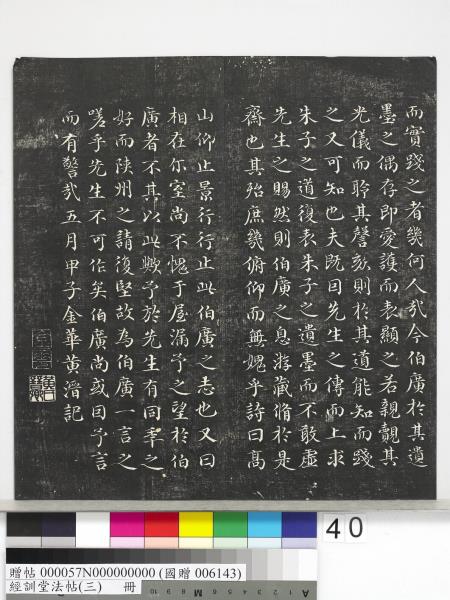 而實踐之者幾何人哉今伯廣於其遺
墨之偶存即愛護而表顯之若親覿其
光儀而聆其謦欬則於其道能知而踐
之又可知也夫既因先生之傳而上求
朱子之道復表朱子之遺墨而不敢虛
先生之賜然則伯廣之息游藏脩於是
齋也其殆庶幾俯仰而無愧乎詩曰高
山仰止景行行止此伯廣之志也又曰
相在尔室尚不愧于屋漏予之望於伯
廣者不其以此歟予於先生有同年之
好而陝州之請復堅故為伯廣一言之
嗟乎先生不可作矣伯廣尚或因予言
而有警哉五月甲子金華黃溍記
40
贈帖 000057N000000000 (國贈 006143)
經訓堂法帖(三) 冊